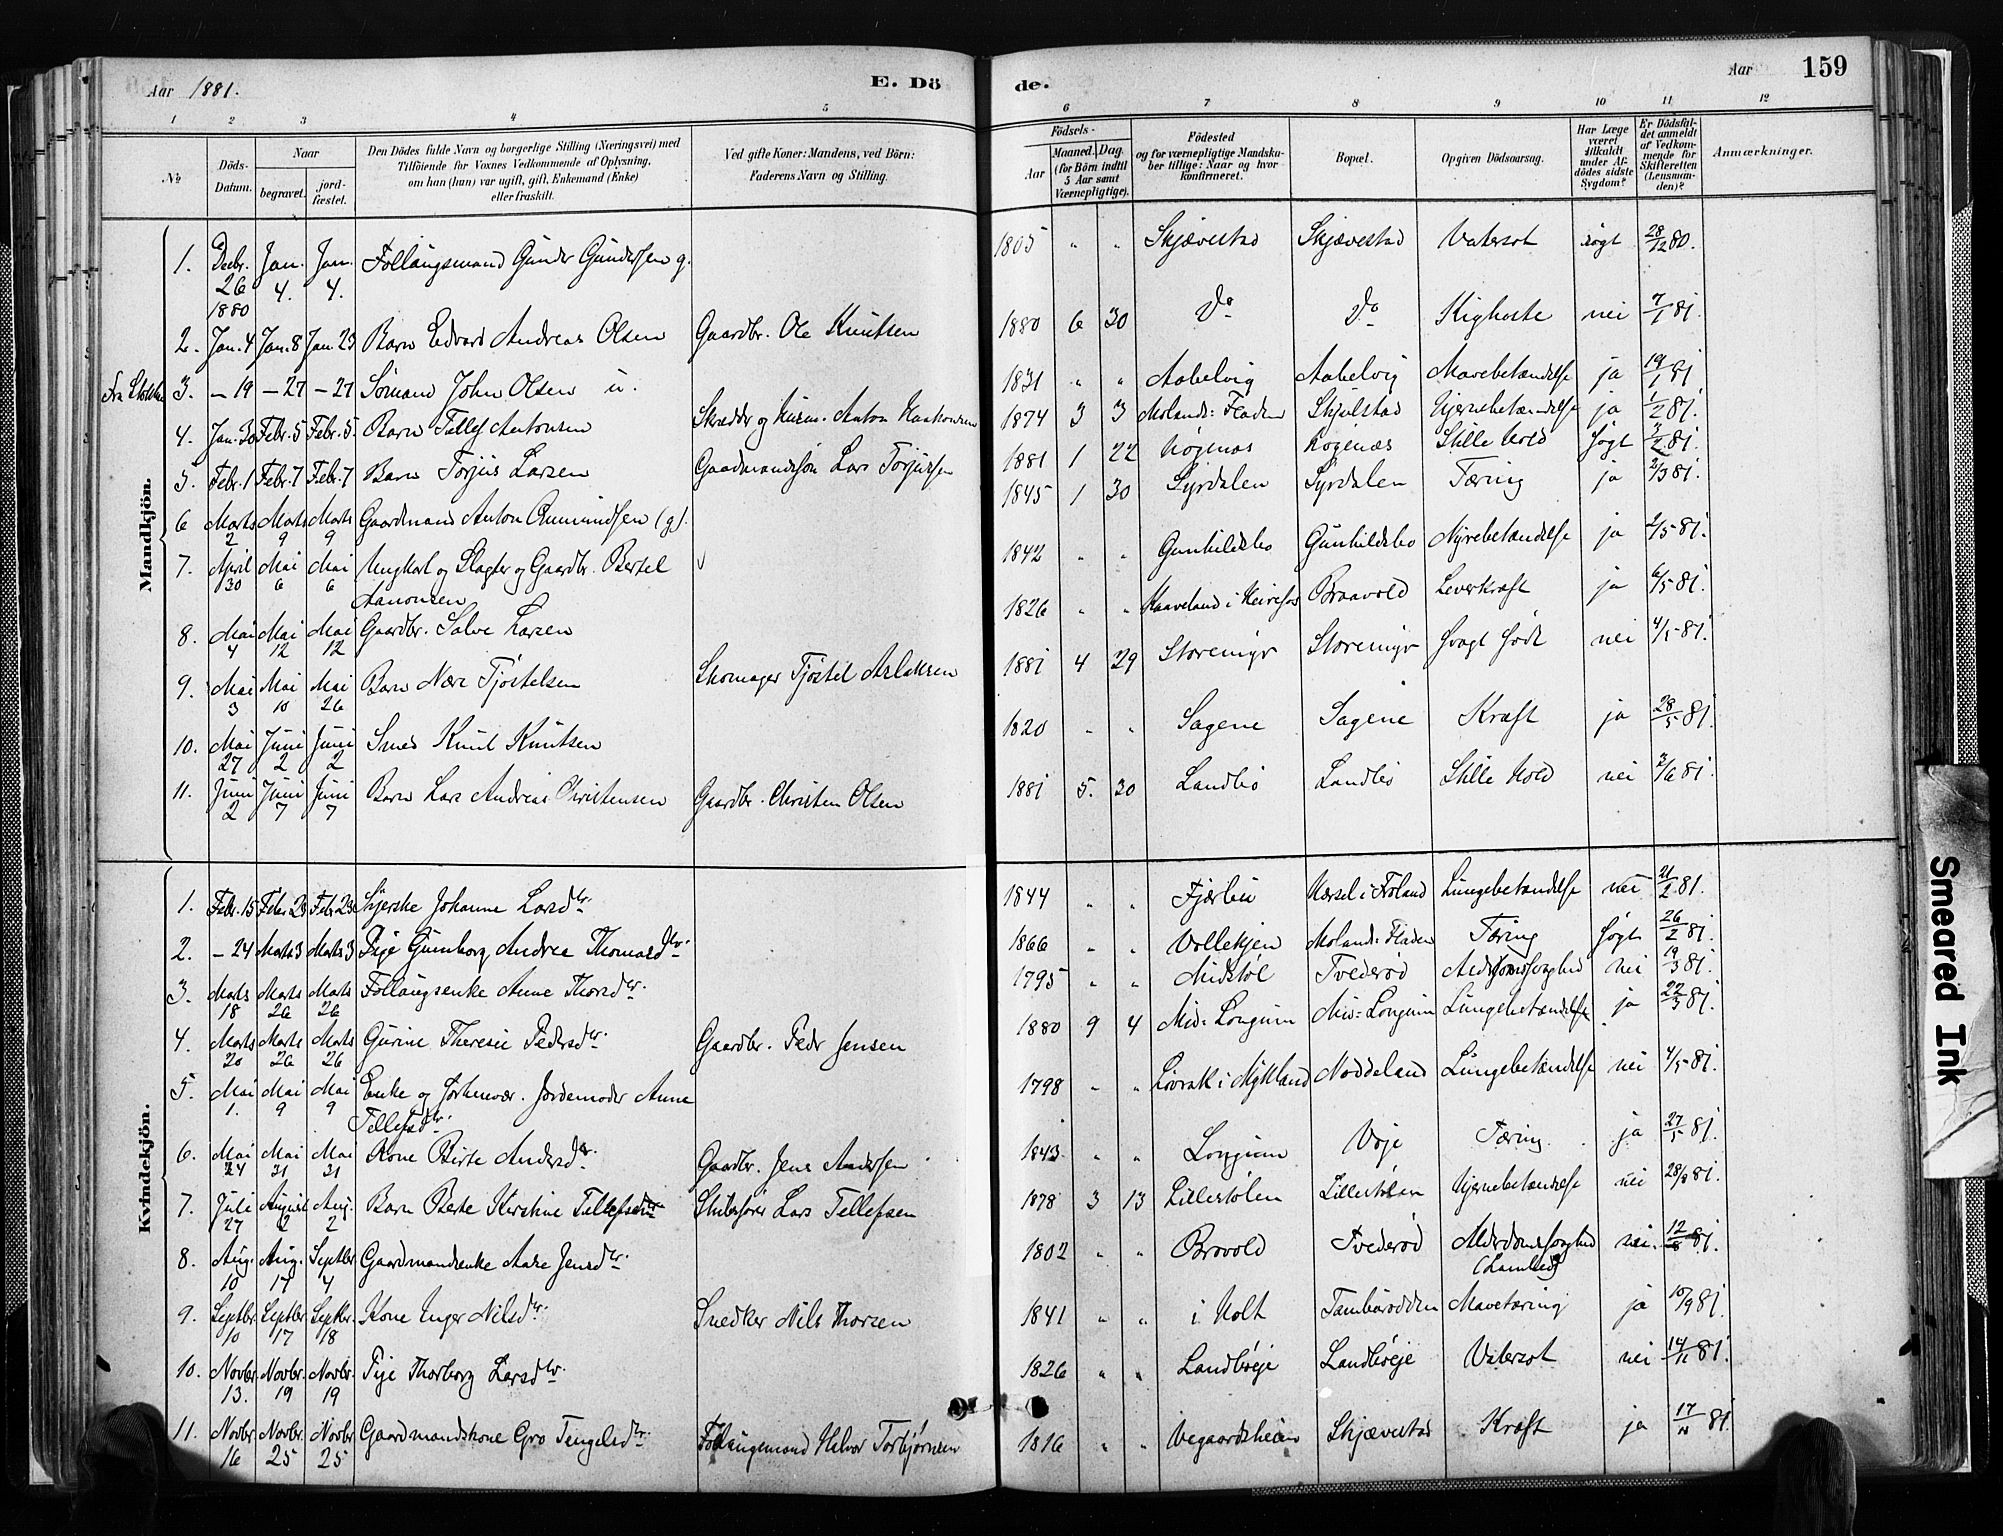 Aar 1881.
E. Dö
de.
Aar
159
1 2 3 4 5 6 7 8 9 10 11 12
No
Döds-Datum.
Naar
begravet.
jordfæstet.
Den Dödes fulde Navn og borgerlige Stilling (Næringsvei) med
Tilföiende for Voxnes Vedkommende af Oplysning,
om han (hun) var ugift, gift, Enkemand (Enke)
eller fraskilt.
Ved gifte Koner: Mandens, ved Börn:
Faderens Navn og Stilling.
Födsels-
Aar
Maaned. Dag.
(for Börn indtil
5 Aar samt
Værnepligtige).
Födested
og for værnepligtige Mandskaber tillige: Naar og hvor
konfirmeret.
Bopæl.
Opgiven Dödsaarsag.
Har Læge
været
tilkaldt
under Afdödes sidste
Sygdom?
Er Dödsfaldet anmeldt
af Vedkommende for
Skifteretten
(Lensmanden)?
Anmærkninger.
Mandkjön.
1. Decbr. 26 1880 Jan. 4. Jan. 4. Follaugsmand Gunder Gundersen g. 1805 " " Skjævestad Skjævestad Vatersot søgt 28/12 80.
2. Jan. 4 Jan. 8 Jan. 23 Barn Edvard Andreas Olsen Gaardbr. Ole Knutsen 1880 6 30 Do Do Kighoste nei 7/1 81.
3. – 19 – 27 – 27 Sømand John Olsen u. 1831 " " Aabelvig Aabelvig Mavebetændelse ja 19/1 81
4. Jan. 30 Febr. 5 Febr. 5. Barn Tellef Antonsen Skrædder og Husm. Anton Haakonsen 1874 3 3 Molands: Fladen Skjulstad Hjernebetændelse ja 1/2 81.
5. Febr. 1 Febr. 7 Febr. 7 Barn Torjus Larsen Gaardmandssøn Lars Torjussen 1881 1 22 Høgenæs Høgenæs Stille Hold søgt 3/2 81.
6 Marts 2 Marts 9 Marts 9 Gaardmand Anton Anmundsen (g). 1845 1 30 Syrdalen Syrdalen Tæring ja 2/3 81.
7. April 30 Mai 6 Mai 6 Ungkarl og Slagter og Gaardbr. Bertel
Aanonsen 1842 " " Gunhildsbo Gunhildsbo Nyrebetændelse ja 2/5 81.
8. Mai 4 Mai 12 Mai 12 Gaardbr. Salve Larsen 1826 " " Braavold Leverkræft ja 6/5 81.
9. Mai 3 Mai 10 Mai 26 Barn Nære Tjøstelsen Skomager Tjøstel Aslaksen 1881 4 29 Storemyr Storemyr svagt født nei 4/5 81.
10. Mai 27 Juni 2 Juni 2 Smed Knut Knutsen 1820 " " Sagene Sagene Kræft ja 28/5 81.
11. Juni 2 Juni 7 Juni 7 Barn Lars Andreas Christensen Gaardbr. Christen Olsen 1881 5. 30 Landbø Landbø Stille Hold nei 3/6 81.
Kvindekjön.
1. Febr. 15 Febr. 23 Febr. 23 Johanne Larsdtr. 1844 " " Fjærbu i Froland Lungebetændelse nei 21/2 81.
2. – 24 Marts 3 Marts 3 Pige Gunborg Andrea Thomasdtr. 1866 " " Vollekjen Molands: Fladen Tæring søgt 26/2 81.
3. Marts 18 Marts 26 Marts 26 Follaugsenke Anne Thorsdtr. 1795 " " Midstøl Tvederød Alderdomssvaghed nei 19/3 81.
4. Marts 20 Marts 26 Marts 26 Gurine Theresie Pedersdtr. Gaardbr. Peder Jensen 1880 9 4 Mid: Longum Mid: Longum Lungebetændelse ja 22/3 81.
5. Mai 1. Mai 9 Mai 9 Enke og Jordemoder Anne
Tellefsdtr. 1798 " " Løvrak i Mykland Noddeland Lungebetændelse nei 4/5 81.
6. Mai 24 Mai 31 Mai 31 Kone Birte Andersdtr. Gaardbr. Jens Andersen 1843 " " Longum Voje Tæring ja 27/5 81.
7. Juli 27 August 2 Aug. 2 Barn Berte Kirstine Tellefsen Skibsfører Lars Tellefsen 1878 3 13 Lillestølen Lillestølen Hjernebetændelse nei 28/8 81.
8. Aug. 10 Aug. 17 Septbr 4 Gaardmandsenke Aase Jensdtr. 1802 " " Bravold Tvederød Alderdomssvaghed
(Lamhed) nei 12/8 81.
9. Septbr. 10 Septbr. 17 Septbr. 18 Kone Inger Nilsdtr. Snedker Nils Thorsen 1841 " " i Holt Tambarodden Mavetæring ja 10/9 81.
10. Novbr. 13. Novbr. 19 Novbr. 19 Pige Thorborg Larsdtr. 1826 " " Landbøeje Landbøeje Vatersot nei 14/11 81.
11. Novbr. 16 Novbr. 25 Novbr. 25 Gaardmandskone Gro Tengelsdtr. Follaugsmand Halvor Torbjørnsen 1816 " " Vegaardsheien Skjævestad Kræft ja 17/11 81.
Smeared Ink